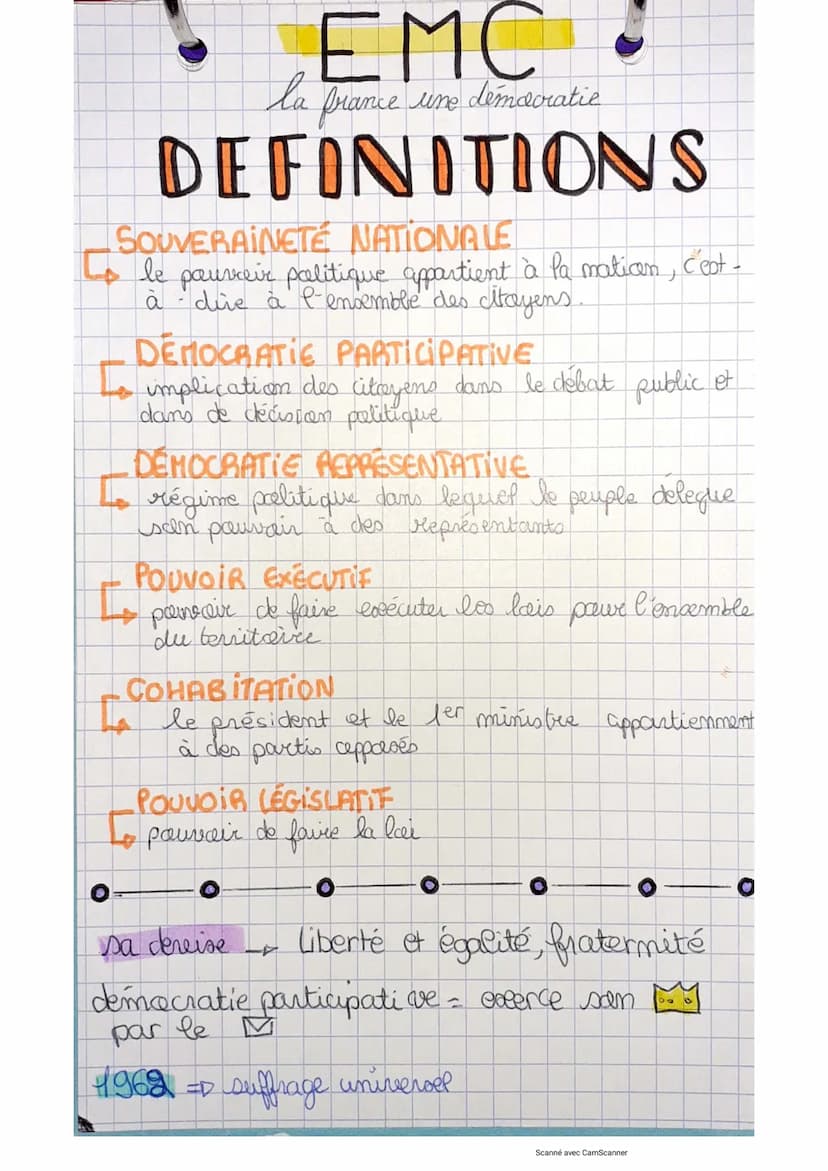 EMC
la france une démocratie
DEFINITIONS
SOUVERAINETÉ NATIONALE
le pouvoir politique appartient à la nation, c'est-
à-dire à l'ensemble des citoyens.
DÉMOCRATIE PARTICIPATIVE
implication des citoyens dans le débat public et
dans de décision politique
DÉMOCRATIE REPRÉSENTATIVE
régime politique dans lequel le peuple délègue
son pouvoir à des représentants
POUVOIR EXÉCUTIF
pouvoir de faire exécuter les lois pour l'ensemble
du territoire
COHABITATION
le président et le 1er ministre appartiennent
à des partis opposés
POUVOIR LÉGISLATIF
pouvoir de faire la loi
sa devise → Liberté et égalité, fraternité
démocratie participative = exerce son
par le
1962 => suffrage universel
Scanné avec CamScanner